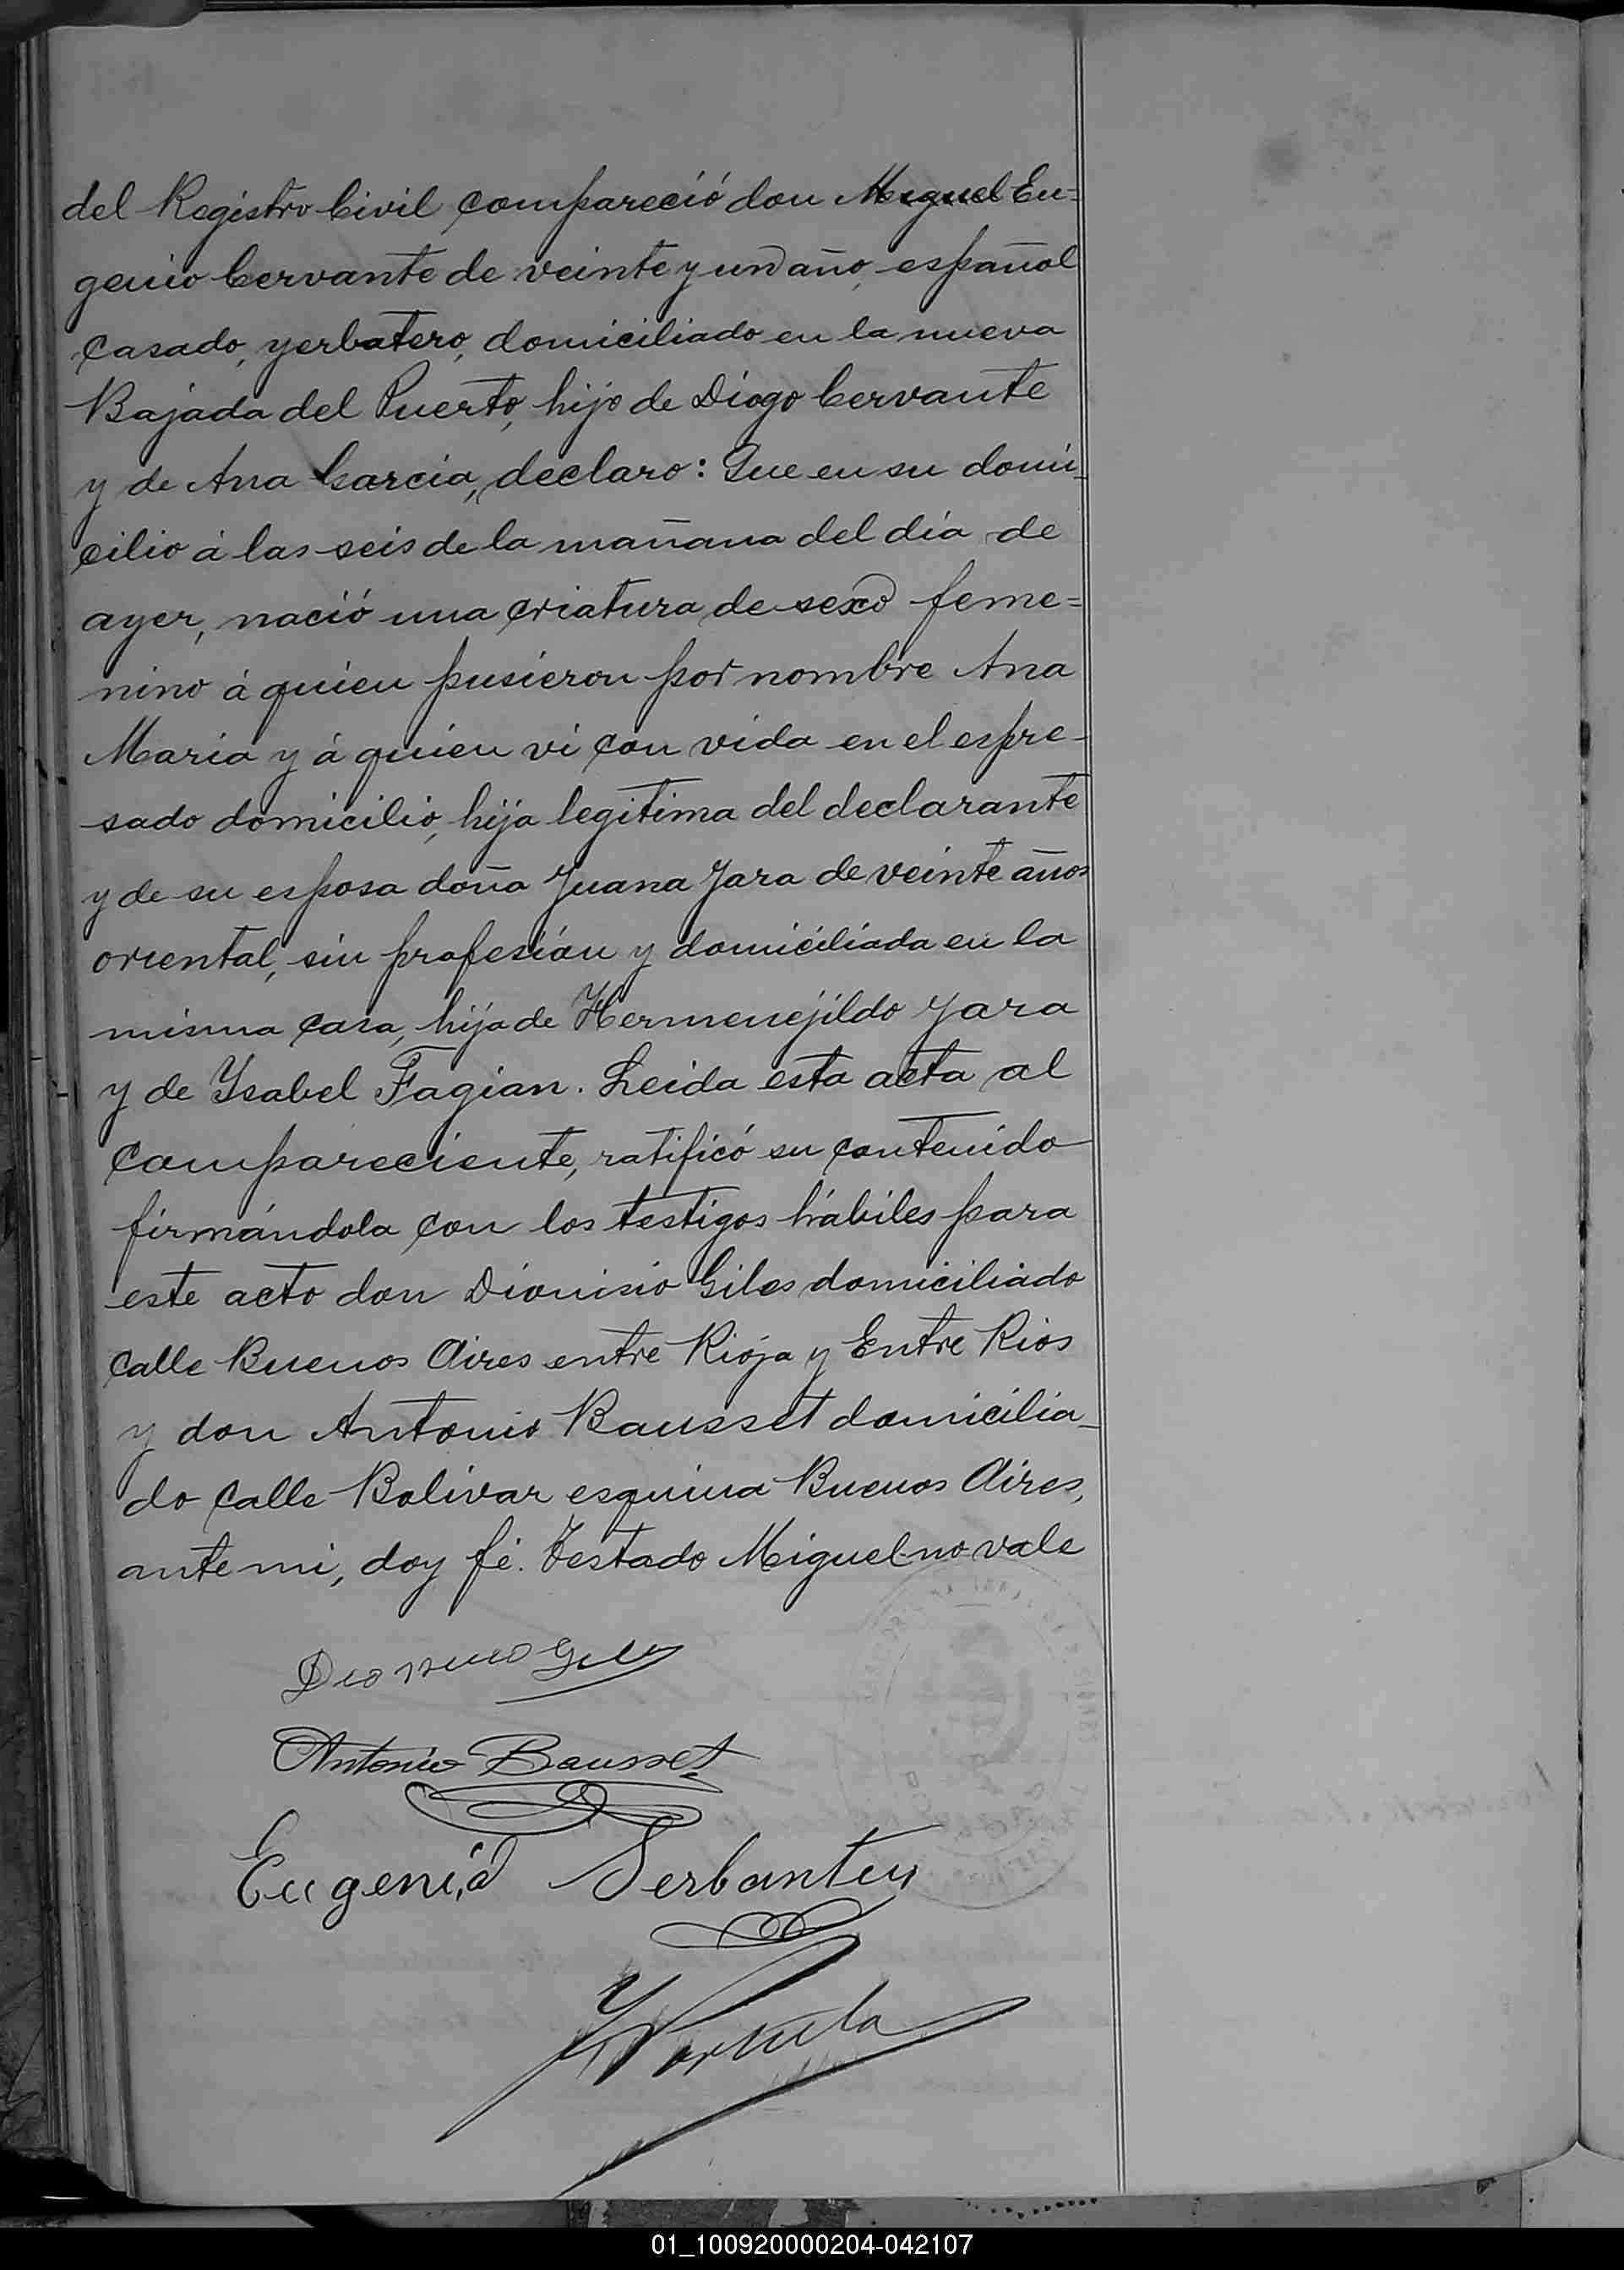 del Registro Civil compareció don Miguel Eu=
genio Cervante de veinte y un año, español
casado, yerbatero, domiciliado en la nueva
Bajada del Puerto, hijo de Diogo Cervante
y de Ana Carcia, declaro: Que en su domi-
cilio á las seis de la mañana del día de
ayer, nació una criatura de sexo feme=
nino á quien pusieron por nombre Ana
Maria y á quien vi con vida en el espre-
sado domicilio, hija legitima del declarante
y de su esposa doña Juana Jara de veinte años
oriental, sin profesión y domiciliada en la
misma casa, hija de Hermenejildo Jara
y de Ysabel Fagian. Leida esta acta al
compareciente, ratificó su contenido
firmándola con los testigos hábiles para
este acto don Dionisio Giles domiciliado
calle Buenos Aires entre Rioja y Entre Rios
y don Antonio Bausset domicilia-
do calle Bolivar esquina Buenos Aires,
ante mi, doy fé. Testado Miguel no vale
Dionisio Giles
Antonio Bausset
Eugenio Serbantes
01_100920000204-042107